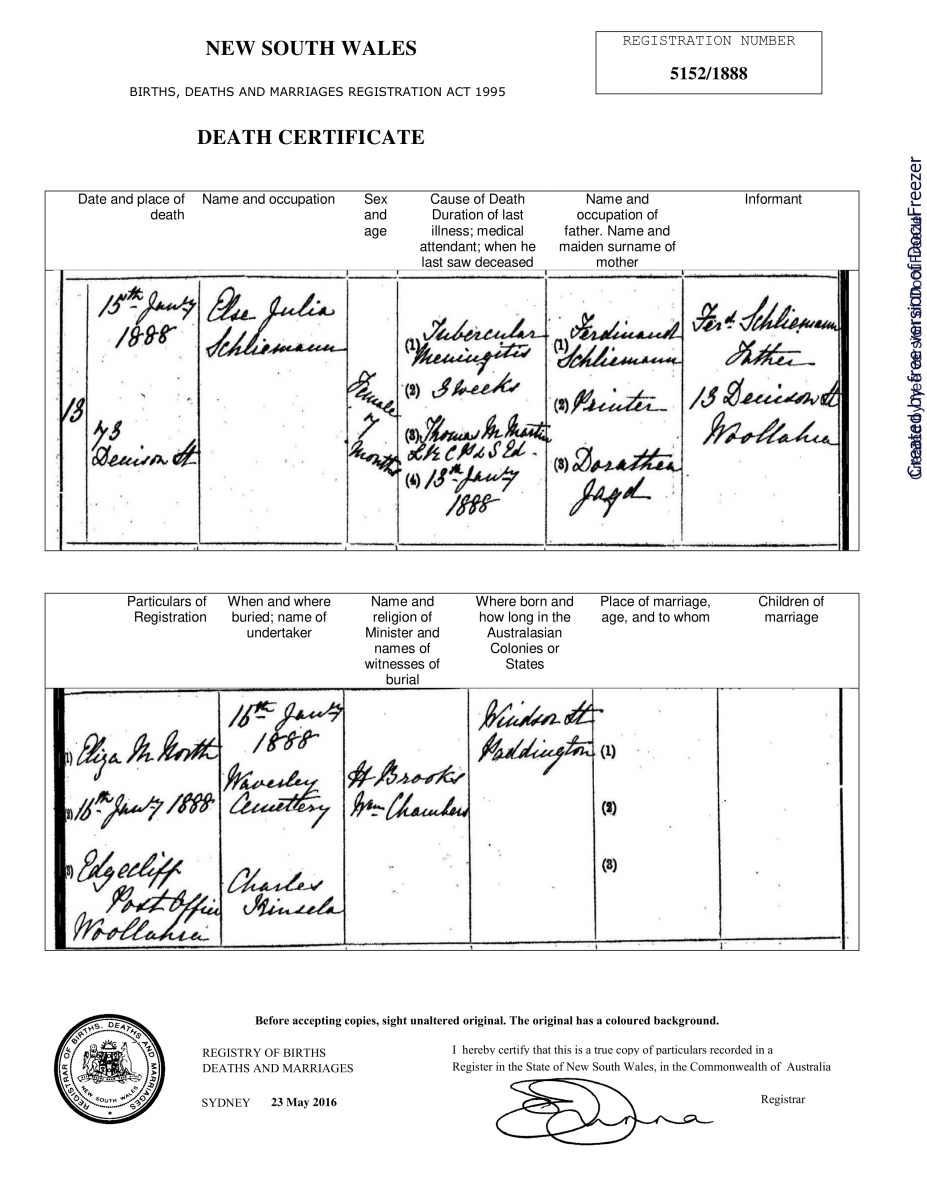 NEW SOUTH WALES
REGISTRATION NUMBER
5152/1888
BIRTHS, DEATHS AND MARRIAGES REGISTRATION ACT 1995
DEATH CERTIFICATE
Date and place of
death
Name and occupation
Sex
and
age
Cause of Death
Duration of last
illness; medical
attendant; when he
last saw deceased
Name and
occupation of
father. Name and
maiden surname of
mother
Informant
13
15th Janry
1888
73
Denison St
Else Julia
Schliemann
Female
7
Months
(1) Tubercular
Meningitis
(2) 3 weeks
(3) Thomas M Martin
L R C P & S Ed.
(4) 13th Janry
1888
(1) Ferdinand
Schliemann
(2) Printer
(3) Dorathea
Jagd
Ferd. Schliemann
Father
13 Denison St
Woollahra
Particulars of
Registration
When and where
buried; name of
undertaker
Name and
religion of
Minister and
names of
witnesses of
burial
Where born and
how long in the
Australasian
Colonies or
States
Place of marriage,
age, and to whom
Children of
marriage
(1) Eliza M North
(2) 16th Janry 1888
(3) Edgecliff
Post Office
Woollahra
16th Janry
1888
Waverley
Cemetery
Charles
Kinsela
H Brooks
Wm Chambers
Windsor St
Paddington
(1)
(2)
(3)
Before accepting copies, sight unaltered original. The original has a coloured background.
REGISTRAR OF BIRTHS, DEATHS AND MARRIAGES
NEW SOUTH WALES
REGISTRY OF BIRTHS
DEATHS AND MARRIAGES
SYDNEY 23 May 2016
I hereby certify that this is a true copy of particulars recorded in a
Register in the State of New South Wales, in the Commonwealth of Australia
Registrar
Created by free version of DocuFreezer